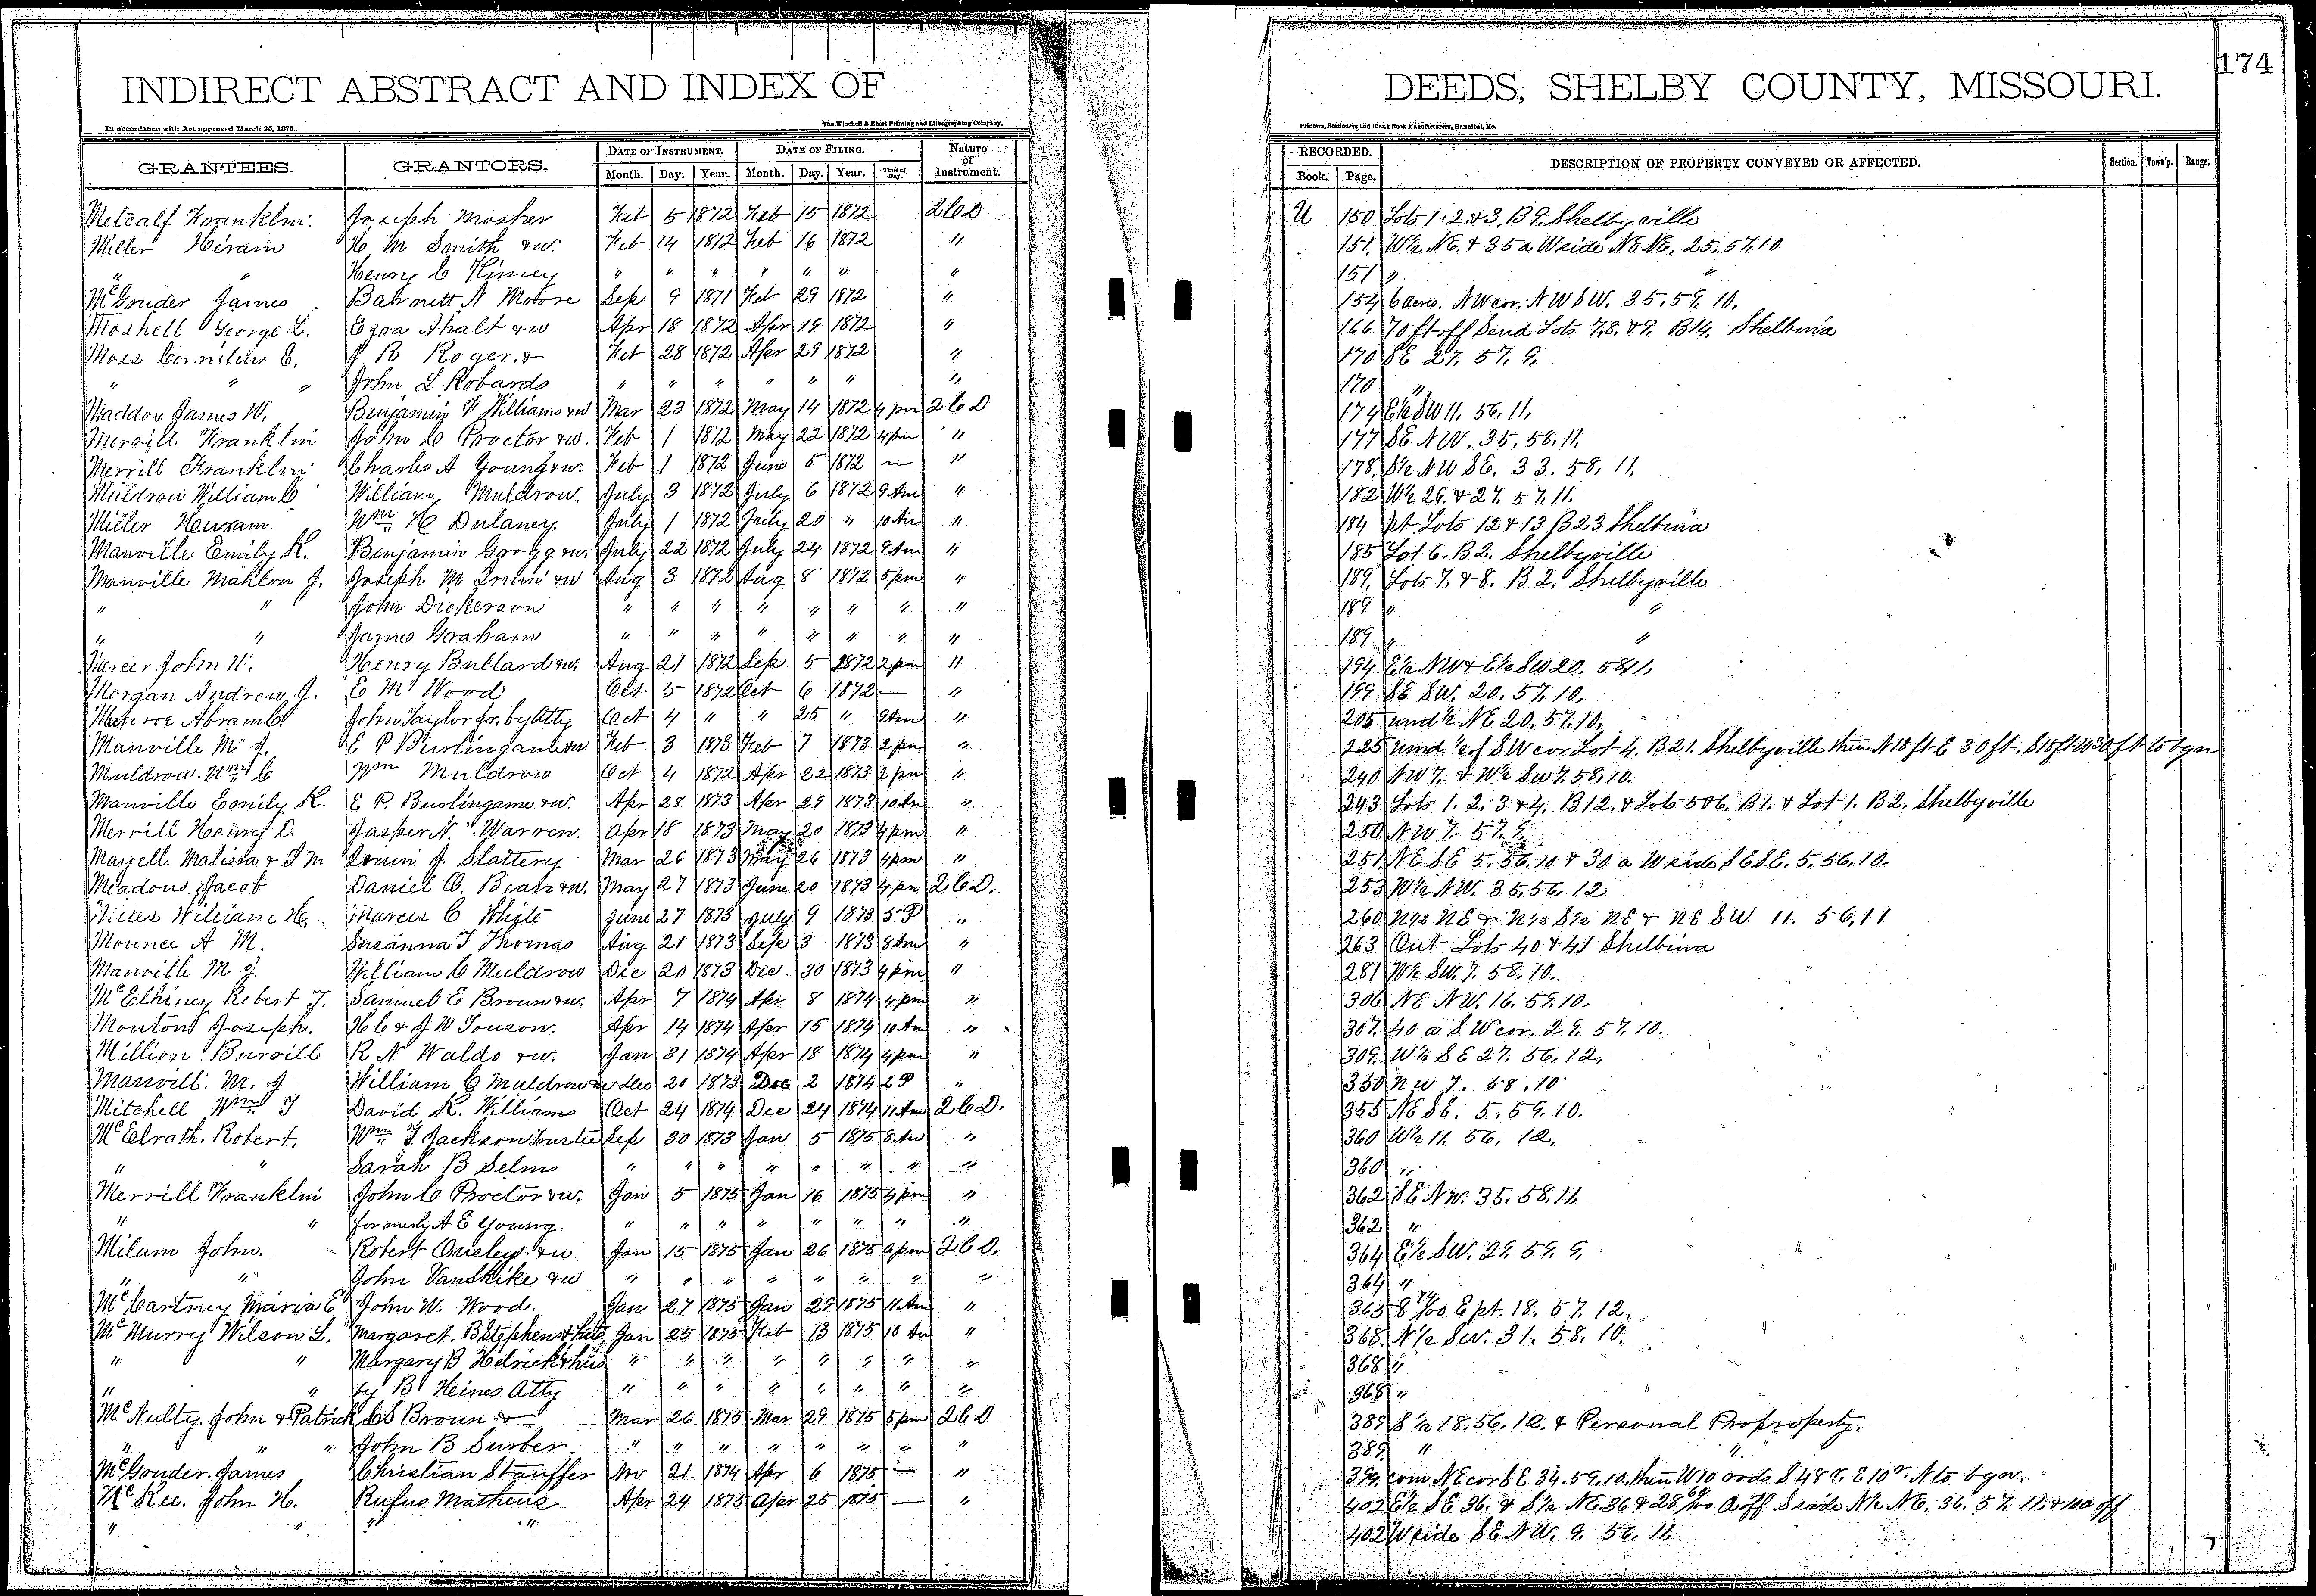 174
INDIRECT ABSTRACT AND INDEX OF DEEDS, SHELBY COUNTY, MISSOURI.
In accordance with Act approved March 25, 1870. The Winchell & Ebert Printing and Lithographing Company, Printers, Stationers and Blank Book Manufacturers, Hannibal, Mo.
GRANTEES. GRANTORS. DATE OF INSTRUMENT. DATE OF FILING. Nature of Instrument. RECORDED. DESCRIPTION OF PROPERTY CONVEYED OR AFFECTED. Section. Town'p. Range.
Month. Day. Year. Month. Day. Year. Time of Day. Book. Page.
Metcalf Franklin Joseph Mosher Feb 5 1872 Feb 15 1872 2CD U 150 Lots 1.2.&3. B9. Shelbyville
Miller Hiram H M Smith &w. Feb 14 1872 Feb 16 1872 " 151. W½ NE. & 35a W side NE NE. 25.57.10
" " Henry C Kinney " " " " " " " 151 " "
McGouder James Barnett N Moore Sep 9 1871 Feb 29 1872 " 154 6 acres. NW cor. NW SW. 35.59.10.
Moshell George L. Ezra Ahalt &w Apr 18 1872 Apr 19 1872 " 166 70 ft off S end Lots 7,8.&9. B14. Shelbina
Moss Cornelius E. J R Roger. & Feb 28 1872 Apr 29 1872 " 170 SE 27. 57. 9.
" " " John L Robards " " " " " " " 170 "
Maddox James W. Benjamin F Williams &w Mar 23 1872 May 14 1872 4 pm 2CD 174 E½ SW 11. 56. 11.
Merrill Franklin John C Proctor &w. Feb 1 1872 May 22 1872 4 pm " 177 SE NW. 35. 58. 11.
Merrill Franklin Charles A Young &w. Feb 1 1872 June 5 1872 — " 178. S½ NW SE. 33. 58. 11.
Muldrow William C William Muldrow. July 3 1872 July 6 1872 9 Am " 182 W½ 26. & 27. 57. 11.
Miller Heiram. Wm H Dulaney. July 1 1872 July 20 " 10 Am " 184 pt. Lots 12 & 13 B23 Shelbina
Manville Emily K. Benjamin Grogg &w. July 22 1872 July 24 1872 9 Am " 185 Lot 6. B2. Shelbyville
Manville Mahlon J. Joseph M Irwin &w Aug 3 1872 Aug 8 1872 5 pm " 189. Lots 7. & 8. B2. Shelbyville
" " John Dickerson " " " " " " " " 189 " "
" " James Graham " " " " " " " " 189 " "
Mercer John W. Henry Bullard &w. Aug 21 1872 Sep 5 1872 2 pm " 194 E½ NW & E½ SW 20. 58 11.
Morgan Andrew J. E M Wood Oct 5 1872 Oct 6 1872 — " 199 SE SW. 20. 57. 10.
Monroe Abram C. John Taylor Jr. by Atty Oct 4 " " 25 " 9 Am " 205 und ½ NE 20. 57. 10.
Manville M J. E P Burlingame &w Feb 3 1873 Feb 7 1873 2 pm " 225 und ½ of SW cor Lot 4. B21. Shelbyville then N 18 ft E 30 ft. S 18 ft W 30 ft to bgn
Muldrow. Wm C Wm Muldrow Oct 4 1872 Apr 22 1873 2 pm " 240 NW 7. & W½ SW 7. 58. 10.
Manville Emily K. E P. Burlingame &w. Apr 28 1873 Apr 29 1873 10 Am " 243 Lots 1. 2. 3 & 4. B12. & Lots 5 & 6. B1. & Lot 1. B2. Shelbyville
Merrill Henry D. Jasper N. Warren. Apr 18 1873 May 20 1873 4 pm " 250 NW 7. 57. 9.
Mayell. Malissa & J M Irwin J. Slattery Mar 26 1873 May 26 1873 4 pm " 251. NE SE 5. 56. 10 & 30 a W side SE SE. 5. 56. 10.
Meadows. Jacob Daniel C. Bean &w. May 27 1873 June 20 1873 4 pm 2CD. 253 W½ NW. 35. 56. 12
Miles William H Marcus C White June 27 1873 July 9 1873 5 P " 260 N½ NE & N½ S½ NE & NE SW 11. 56. 11
Mounce A M. Susanna T Thomas Aug 21 1873 Sep 3 1873 8 Am " 263 Out Lots 40 & 41 Shelbina
Manville M J. William C Muldrow Dec 20 1873 Dec. 30 1873 4 pm " 281 W½ SW. 7. 58. 10.
McElhiney Robert J. Samuel E Brown &w. Apr 7 1874 Apr 8 1874 4 pm " 306 NE NW. 16. 59. 10.
Mouton Joseph. H C & J W Touson. Apr 14 1874 Apr 15 1874 10 Am " 307. 40 a SW cor. 29. 57. 10.
Million Burrill R N Waldo &w. Jan 31 1874 Apr 18 1874 4 pm " 309. W½ SE 27. 56. 12.
Manvill. M. J William C Muldrow &w Dec 20 1873 Dec 2 1874 2 P " 350 NW 7. 58. 10
Mitchell Wm T David K. Williams Oct 24 1874 Dec 24 1874 11 Am 2CD. 355 NE SE. 5. 59. 10.
McElrath. Robert. Wm T Jackson Trustee Sep 30 1873 Jan 5 1875 8 Am " 360 W½ 11. 56. 12.
" " Sarah B Selms " " " " " " " " 360 "
Merrill Franklin John C Proctor &w. Jan 5 1875 Jan 16 1875 4 pm " 362 SE NW. 35. 58. 11.
" " formerly A E Young. " " " " " " " " 362 "
Milam John. Robert Ousley. &w Jan 15 1875 Jan 26 1875 pm 2CD. 364 E½ SW. 29. 59. 9.
" " John Vanskike &w " " " " " " " " 364 "
McCartney Maria E John W. Wood. Jan 27 1875 Jan 29 1875 11 Am " 365 8 /100 E pt. 18. 57. 12.
McMurry Wilson L. Margaret. B Stephens & hus Jan 25 1875 Feb 13 1875 10 Am " 368. N½ SW. 31. 58. 10.
" " Margary B Hedrick & hus " " " " " " " " 368 "
" " by B Heines Atty " " " " " " " " 368 "
McNulty. John & Patrick C S Brown & Mar 26 1875 Mar 29 1875 5 pm 2CD 389 S½ 18. 56. 12. & Personal Proproperty.
" " " John B Surber. " " " " " " " " 389. " "
McGouder. James Christian Stauffer Nov 21. 1874 Apr 6 1875 — " 399. com NE cor SE 34. 59. 10. then W 10 rods S 48 r. E 10 r. N to bgn.
McKee. John H. Rufus Matheus Apr 24 1875 Apr 25 1875 — " 402 E½ SE 36. & S½ NE 36 & 28 /100 a off S side N½ NE. 36. 57. 11. & 10 a off
" " " " 402 W side SE NW. 9. 56. 11.